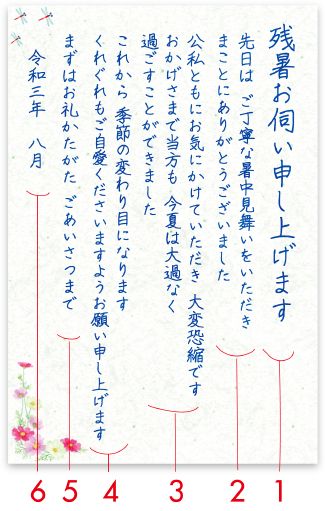 残暑お伺い申し上げます
先日は ご丁寧な暑中見舞いをいただき
まことにありがとうございました
公私ともにお気にかけていただき 大変恐縮です
おかげさまで当方も 今夏は大過なく
過ごすことができました
これから 季節の変わり目になります
くれぐれもご自愛くださいますようお願い申し上げます
まずはお礼かたがた ごあいさつまで
令和三年 八月
6 5 4 3 2 1